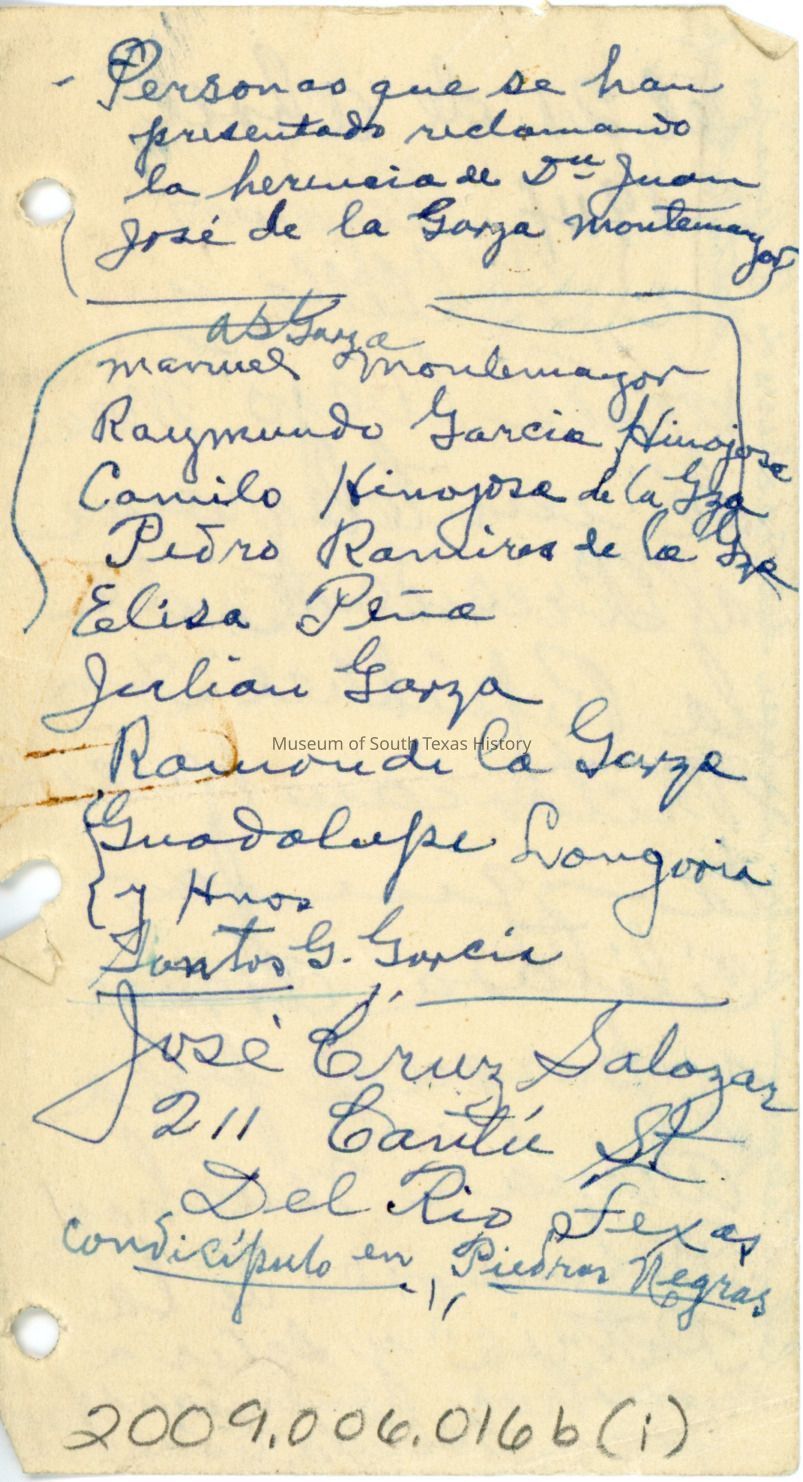 - Personas que se han
presentado reclamando
la herencia de Dn Juan
José de la Garza Montemayor
Garza
Manuel Montemayor
Raymundo Garcia Hinojosa
Camilo Hinojosa de la Gza
Pedro Ramires de la Gza
Elisa Peña
Julian Garza
Ramon de la Garza
Guadalupe Longoria
y Hnos
Santos G. Garcia
José Cruz Salazar
211 Cantú St
Del Rio, Texas
Condicípulo en Piedras Negras
2009.006.016b(i)
Museum of South Texas History